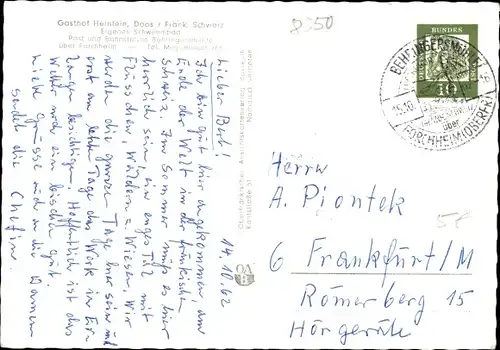 Gasthof Heinlein, Doos / Fränk. Schweiz
Eigenes Schwimmbad
Post und Bahnstation Behringersmühle
über Forchheim
8350
BUNDES
10
BEHRINGERSMÜHLE
15.10
über
FORCHHEIM (OBERFR)
14.10.62
Lieber Bert!
Ich bin gut hier angekommen, am
Ende der Welt in der fränkischen
Schweiz. Im Sommer muß es hier
herrlich sein, ein enges Tal mit
Flüsschen, Wäldern u. Wiesen. Wir
werden die ganzen Tage hier sein und
erst am letzten Tage das Werk in
besichtigen. Hoffentlich ist das
Wetter noch ein bischen gut.
Liebe Grüsse auch an die Damen
sendet die Chefin.
Herrn
A. Piontek
6 Frankfurt/M
Römerberg 15
Hörgeräte